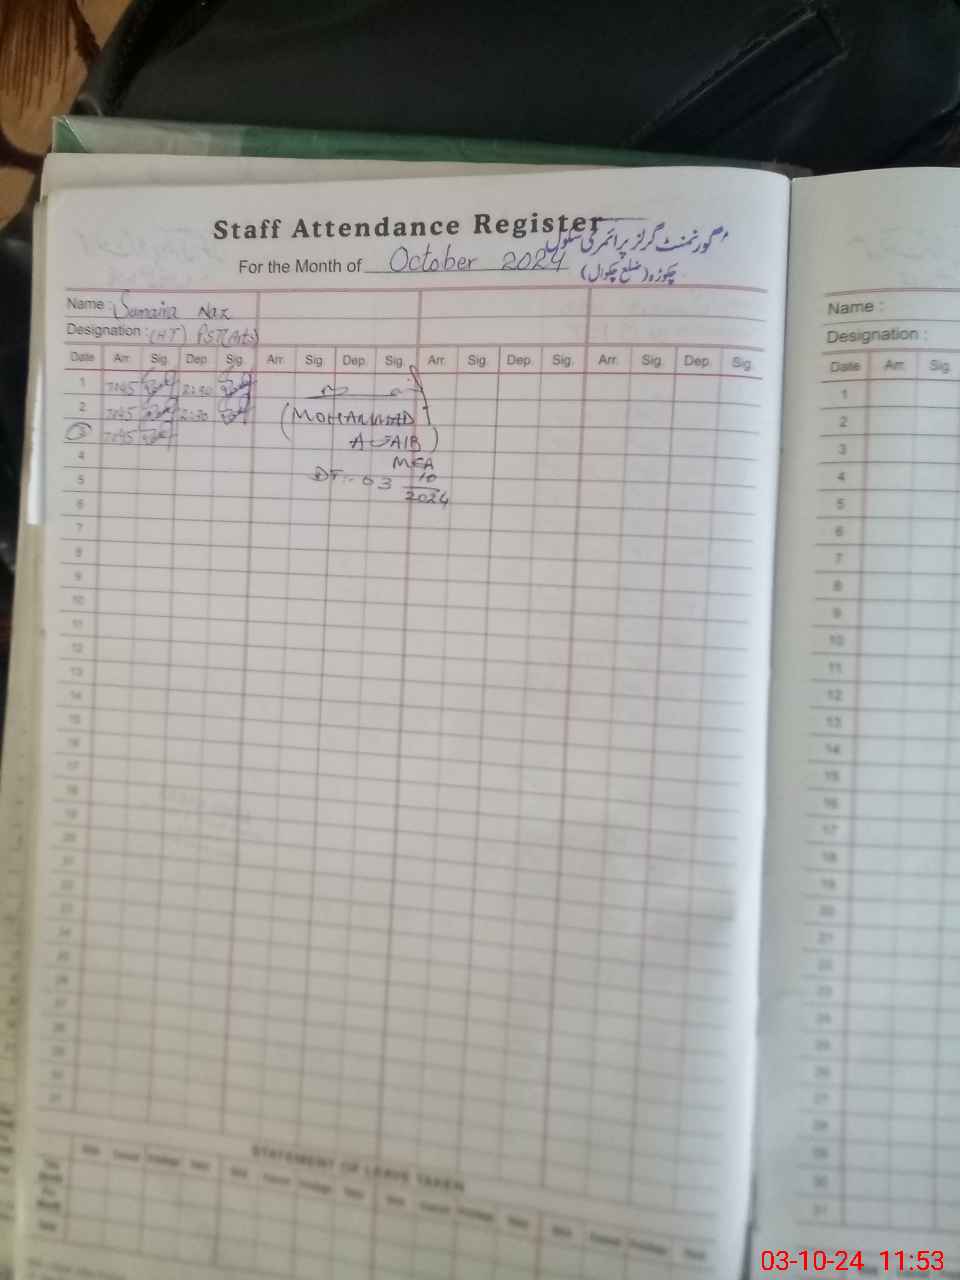 Staff Attendance Register
گورنمنٹ گرلز پرائمری سکول
For the Month of October 2024
چکوڑہ (ضلع چکوال)
Name : Sumaira Naz
Designation : (HT) PST(Arts)
Date Arr. Sig. Dep. Sig. Arr. Sig. Dep. Sig. Arr. Sig. Dep. Sig. Arr. Sig. Dep. Sig.
1 7:45 2:30
2 7:45 2:30
(MOHAMMAD
3 7:45
4
MEA
5
DT:- 03
10
2024
6
7
8
9
10
11
12
13
14
15
16
17
18
19
20
21
22
23
24
25
26
27
28
29
30
31
STATEMENT OF LEAVE TAKEN
Name :
Designation :
Date Arr. Sig.
1
2
3
4
5
6
7
8
9
10
11
12
13
14
15
16
17
18
19
20
21
22
23
24
25
26
27
28
29
30
31
03-10-24 11:53